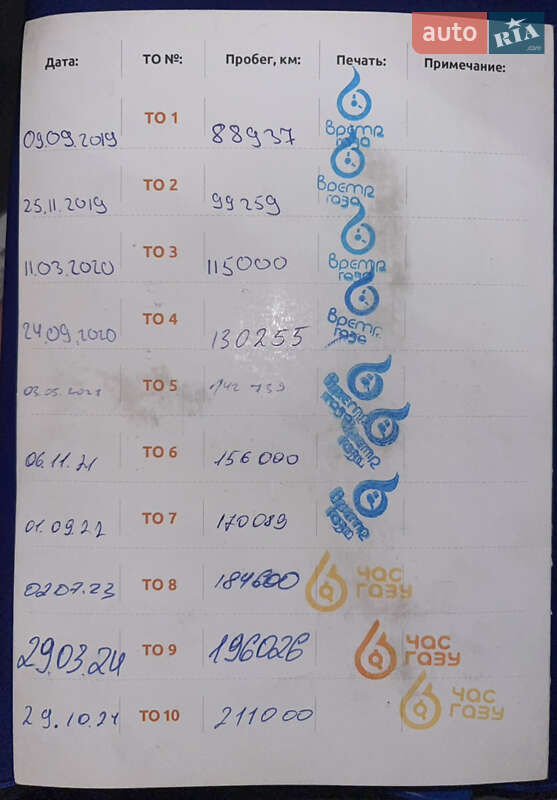 auto RIA .com
Дата: ТО №: Пробег, км: Печать: Примечание:
09.09.2019 ТО 1 88937 Время газа
25.11.2019 ТО 2 99259 Время газа
11.03.2020 ТО 3 115000 Время газа
24.09.2020 ТО 4 130255 Время газа
03.05.2021 ТО 5 142 739 Время газа
06.11.21 ТО 6 156000 Время газа
01.09.22 ТО 7 170089 Время газа
02.07.23 ТО 8 184600 ЧАС ГАЗУ
29.03.24 ТО 9 196026 ЧАС ГАЗУ
29.10.24 ТО 10 211000 ЧАС ГАЗУ